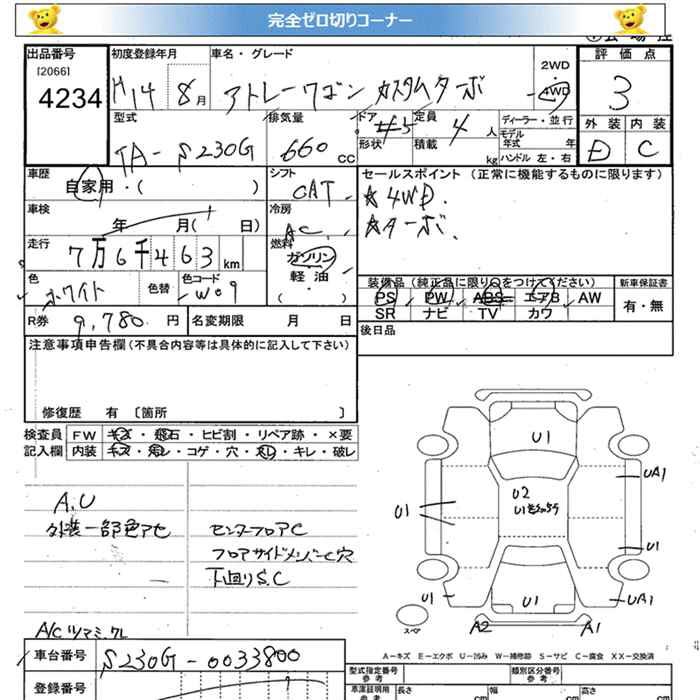 完全ゼロ切りコーナー
出品番号 初度登録年月 車名・グレード 評価点
[2066] 4234 H14 8月 アトレーワゴン カスタムターボ 2WD 4WD 3
型式 排気量 ドア #5 定員 4人 ディーラー・並行 外装 内装
TA-S230G 660 CC 形状 積載 kg モデル年式 年 ハンドル 左・右 D C
車歴 シフト セールスポイント(正常に機能するものに限ります)
自家用・( ) CAT ☆4WD.
車検 冷房 ☆ターボ.
年 月( 日) AC
走行 燃料
7万6千463km ガソリン
色 色替 色コード 軽・油 装備品(純正品に限り○をつけてください) 新車保証書
ホワイト W09 ( ) PS PW ABS エアB AW 有・無
SR ナビ TV カワ
R券 9,780円 名変期限 月 日 後日品
注意事項申告欄(不具合内容等は具体的に記入して下さい)
修復歴 有 〔箇所 〕
検査員 FW キズ・飛石・ヒビ割・リペア跡・×要
記入欄 内装 キズ・コゲ・穴・キレ・破レ
A.U
外装一部色アセ センターフロアC
フロアサイドメンバーC穴
下廻りS.C
A/Cツマミ.クレ
U1
U2
UA1
U1
U1
U1
U1 UA1
U1
スペア A2 A1
A－キズ E－エクボ U－凹み W－補修跡 S－サビ C－腐食 XX－交換済
車台番号 S230G-0033800 型式指定番号 参考 類別区分番号 参考
登録番号 車庫証明用 参考 長さ cm 幅 cm 高さ cm